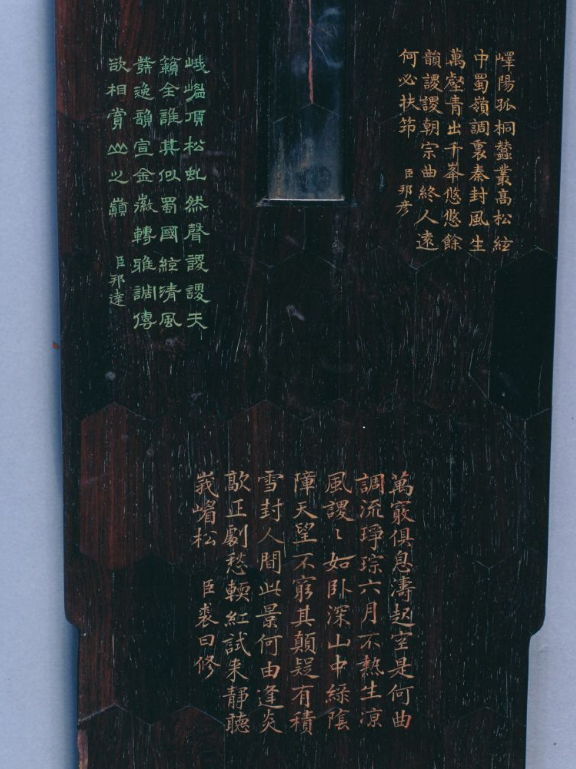 嶧陽孤桐蠶叢高松絃
中蜀嶺調裏秦封風生
萬壑青出千峯悠悠餘
韻謖謖朝宗曲終人遠
何必扶笻 臣邦彦
峨嵋頂松虬然聲謖謖天
籟全誰其似蜀國絃清風
發逸韻宣金徽轉雅調傳
欲相賞山之巔 臣邦達
萬竅俱息濤起空是何曲
調流琤琮六月不熱生凉
風謖〻如卧深山中綠陰
障天望不窮其顛疑有積
雪封人間此景何由逢炎
歊正劇愁輭紅試来静聽
峩嵋松 臣裘曰修